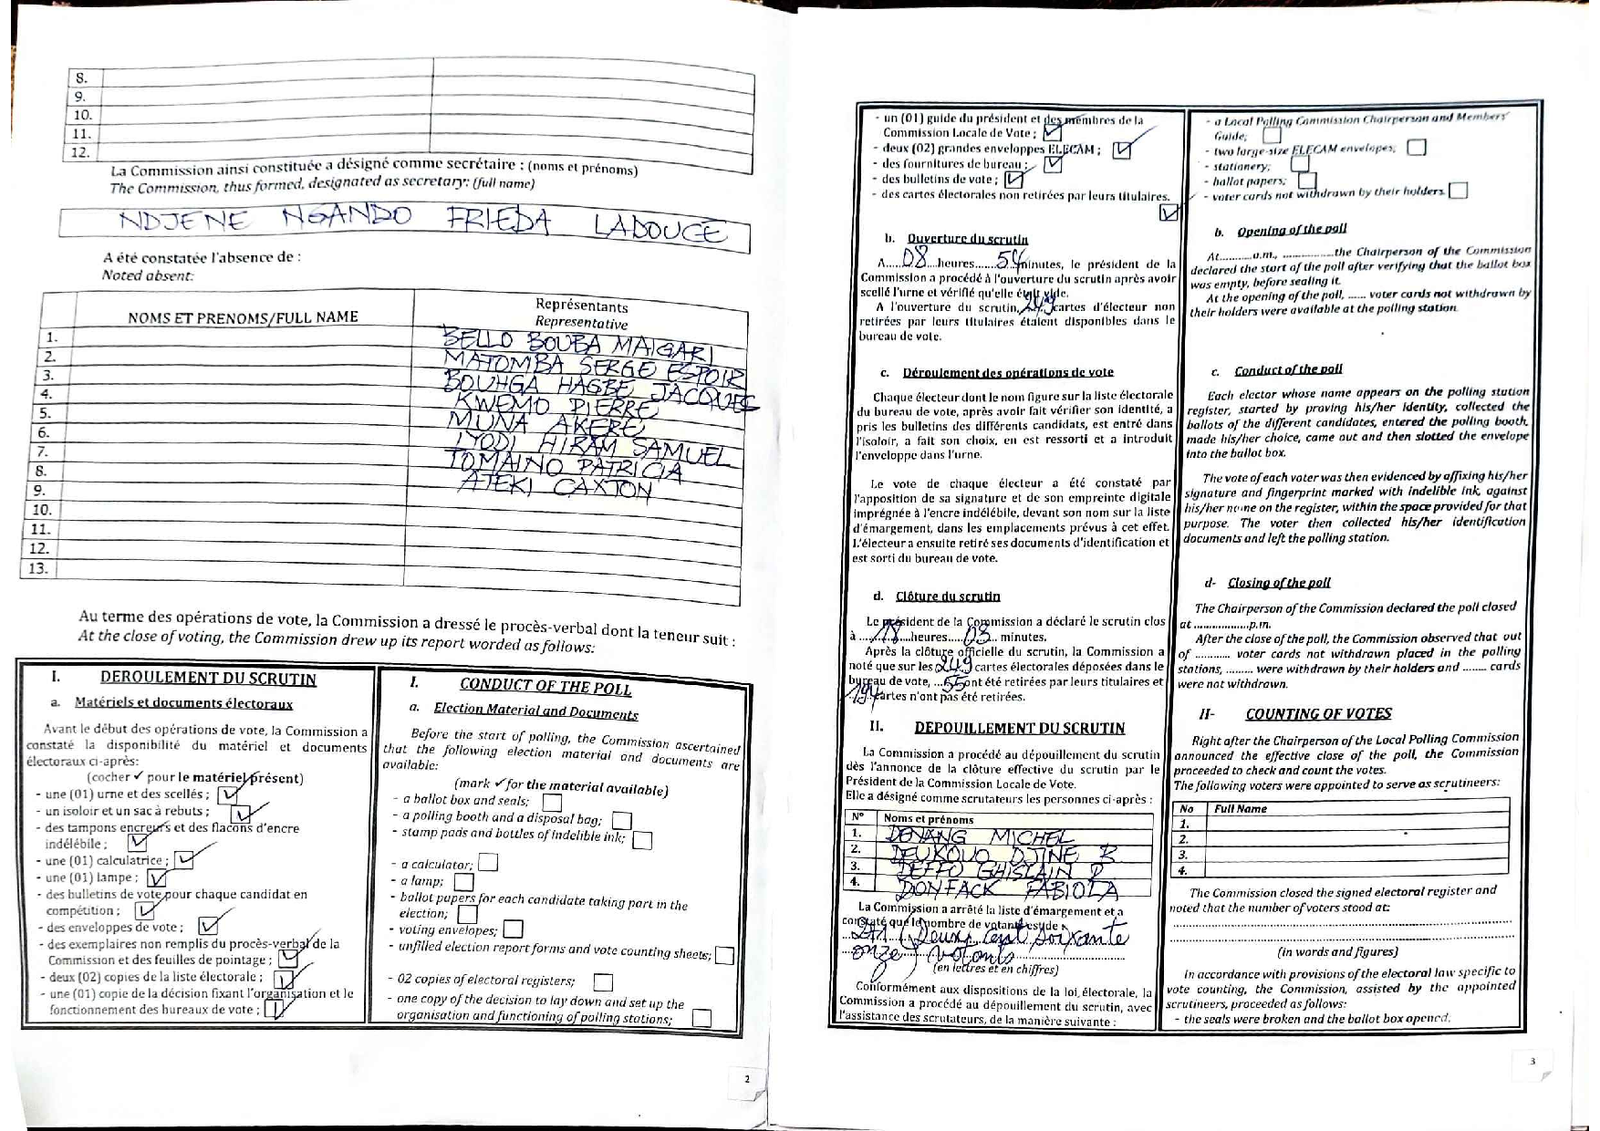 8.
9.
10.
11.
12.
La Commission ainsi constituée a désigné comme secrétaire : (noms et prénoms)
The Commission, thus formed, designated as secretary: (full name)
NDJENE NGANDO FRIEDA LADOUCE
A été constatée l'absence de :
Noted absent:
NOMS ET PRENOMS/FULL NAME
Représentants
Representative
1. BELLO BOUBA MAIGARI
2. MATOMBA SERGE ESPOIR
3. BOUHGA HAGBE JACQUES
4. KWEMO PIERRE
5. MUNA AKERE
6. IYODI HIRAM SAMUEL
7. TOMAINO PATRICIA
8. ATEKI CAXTON
9.
10.
11.
12.
13.
Au terme des opérations de vote, la Commission a dressé le procès-verbal dont la teneur suit :
At the close of voting, the Commission drew up its report worded as follows:
I. DEROULEMENT DU SCRUTIN
a. Matériels et documents électoraux
Avant le début des opérations de vote, la Commission a
constaté la disponibilité du matériel et documents
électoraux ci-après:
(cocher ✓ pour le matériel présent)
- une (01) urne et des scellés ; ☑
- un isoloir et un sac à rebuts ; ☑
- des tampons encreurs et des flacons d'encre
indélébile ; ☑
- une (01) calculatrice ; ☑
- une (01) lampe ; ☑
- des bulletins de vote pour chaque candidat en
compétition ; ☑
- des enveloppes de vote ; ☑
- des exemplaires non remplis du procès-verbal de la
Commission et des feuilles de pointage ; ☑
- deux (02) copies de la liste électorale ; ☑
- une (01) copie de la décision fixant l'organisation et le
fonctionnement des bureaux de vote ; ☑
I. CONDUCT OF THE POLL
a. Election Material and Documents
Before the start of polling, the Commission ascertained
that the following election material and documents are
available:
(mark ✓ for the material available)
- a ballot box and seals; ☐
- a polling booth and a disposal bag; ☐
- stamp pads and bottles of indelible ink; ☐
- a calculator; ☐
- a lamp; ☐
- ballot papers for each candidate taking part in the
election; ☐
- voting envelopes; ☐
- unfilled election report forms and vote counting sheets; ☐
- 02 copies of electoral registers; ☐
- one copy of the decision to lay down and set up the
organisation and functioning of polling stations; ☐
2
- un (01) guide du président et des membres de la
Commission Locale de Vote ; ☑
- deux (02) grandes enveloppes ELECAM ; ☑
- des fournitures de bureau ; ☑
- des bulletins de vote ; ☑
- des cartes électorales non retirées par leurs titulaires.
☑
b. Ouverture du scrutin
A.....08....heures.......54minutes, le président de la
Commission a procédé à l'ouverture du scrutin après avoir
scellé l'urne et vérifié qu'elle était vide.
A l'ouverture du scrutin, 249 cartes d'électeur non
retirées par leurs titulaires étaient disponibles dans le
bureau de vote.
c. Déroulement des opérations de vote
Chaque électeur dont le nom figure sur la liste électorale
du bureau de vote, après avoir fait vérifier son identité, a
pris les bulletins des différents candidats, est entré dans
l'isoloir, a fait son choix, en est ressorti et a introduit
l'enveloppe dans l'urne.
Le vote de chaque électeur a été constaté par
l'apposition de sa signature et de son empreinte digitale
imprégnée à l'encre indélébile, devant son nom sur la liste
d'émargement, dans les emplacements prévus à cet effet.
L'électeur a ensuite retiré ses documents d'identification et
est sorti du bureau de vote.
d. Clôture du scrutin
Le président de la Commission a déclaré le scrutin clos
à ....18.....heures.....03... minutes.
Après la clôture officielle du scrutin, la Commission a
noté que sur les 249 cartes électorales déposées dans le
bureau de vote, ...55ont été retirées par leurs titulaires et
194 cartes n'ont pas été retirées.
II. DEPOUILLEMENT DU SCRUTIN
La Commission a procédé au dépouillement du scrutin
dès l'annonce de la clôture effective du scrutin par le
Président de la Commission Locale de Vote.
Elle a désigné comme scrutateurs les personnes ci-après :
N° Noms et prénoms
1. DENANG MICHEL
2. DEUKOUO DJINE B
3. DEFFO GHISLAIN D
4. DONFACK FABIOLA
La Commission a arrêté la liste d'émargement et a
constaté que le nombre de votants est de :
271 (Deux cent soixante
onze) votants
(en lettres et en chiffres)
Conformément aux dispositions de la loi électorale, la
Commission a procédé au dépouillement du scrutin, avec
l'assistance des scrutateurs, de la manière suivante :
- a Local Polling Commission Chairperson and Members'
Guide; ☐
- two large-size ELECAM envelopes; ☐
- stationery; ☐
- ballot papers; ☐
- voter cards not withdrawn by their holders. ☐
b. Opening of the poll
At...........a.m., .................the Chairperson of the Commission
declared the start of the poll after verifying that the ballot box
was empty, before sealing it.
At the opening of the poll, ...... voter cards not withdrawn by
their holders were available at the polling station.
c. Conduct of the poll
Each elector whose name appears on the polling station
register, started by proving his/her identity, collected the
ballots of the different candidates, entered the polling booth,
made his/her choice, came out and then slotted the envelope
into the ballot box.
The vote of each voter was then evidenced by affixing his/her
signature and fingerprint marked with indelible ink, against
his/her name on the register, within the space provided for that
purpose. The voter then collected his/her identification
documents and left the polling station.
d- Closing of the poll
The Chairperson of the Commission declared the poll closed
at ..................p.m.
After the close of the poll, the Commission observed that out
of ............ voter cards not withdrawn placed in the polling
stations, ......... were withdrawn by their holders and ........ cards
were not withdrawn.
II- COUNTING OF VOTES
Right after the Chairperson of the Local Polling Commission
announced the effective close of the poll, the Commission
proceeded to check and count the votes.
The following voters were appointed to serve as scrutineers:
No Full Name
1.
2.
3.
4.
The Commission closed the signed electoral register and
noted that the number of voters stood at:
(in words and figures)
In accordance with provisions of the electoral law specific to
vote counting, the Commission, assisted by the appointed
scrutineers, proceeded as follows:
- the seals were broken and the ballot box opened.
3